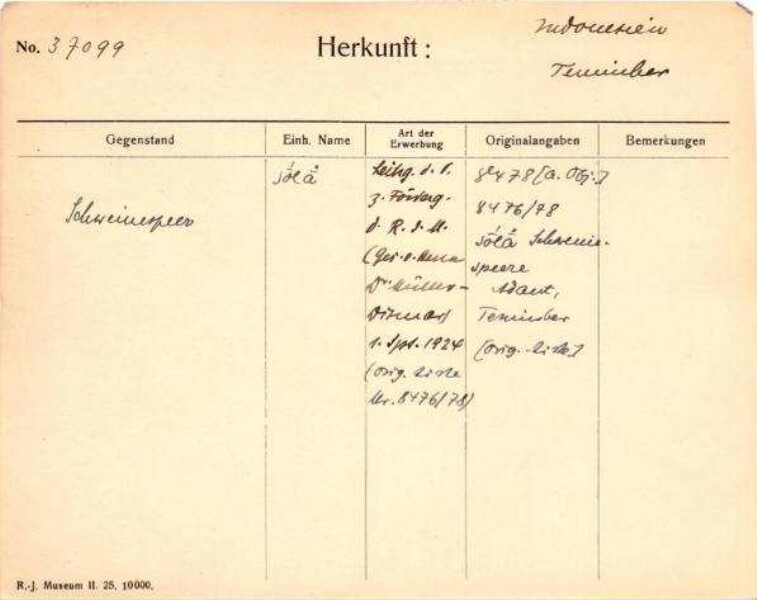 No. 37099
Herkunft:
Indonesien
Teminber
Gegenstand
Einh. Name
Art der Erwerbung
Originalangaben
Bemerkungen
Schweinespeer
Leihg. d. V.
z. Förderg.
d. R. J. M.
(Ges. v. Herrn
Dr. Müller-
Dismar)
1. Spt. 1924
(orig. Liste
Nr. 8476/78)
8478 [a. Obj.]
8476/78
Schweine-
speere
Teminber
[orig. Liste]
R.-J. Museum II. 25. 10000.